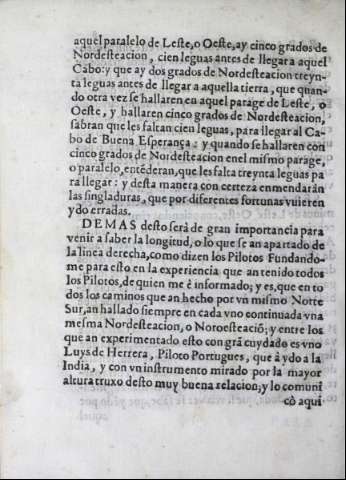 aquel paralelo de Leste, o Oeste, ay cinco grados de
Nordesteacion, cien leguas antes de llegar a aquel
Cabo: y que ay dos grados de Nordesteacion treyn-
ta leguas antes de llegar a aquella tierra, que quan-
do otra vez se hallaren en aquel parage de Leste, o
Oeste, y hallaren cinco grados de Nordesteacion,
sabran que les faltan cien leguas, para llegar al Ca-
bo de Buena Esperança: y quando se hallaren con
cinco grados de Nordesteacion enel mismo parage,
o paralelo, entēderan, que les falta treynta leguas pa
ra llegar: y desta manera con certeza enmendarán
las singladuras, que por diferentes fortunas vuieren
ydo erradas.
DEMAS desto será de gran importancia para
venir a saber la longitud, o lo que se an apartado de
la linea derecha, como dizen los Pilotos Fundando-
me para esto en la experiencia que an tenido todos
los Pilotos, de quien me è informado; y es, que en to
dos los caminos que an hecho por vn mismo Norte
Sur, an hallado siempre en cada vno continuada vna
mesma Nordesteacion, o Noroesteació; y entre los
que an experimentado esto con grā cuydado es vno
Luys de Herrera, Piloto Portugues, que à ydo a la
India, y con vn instrumento mirado por la mayor
altura truxo desto muy buena relacion; y lo comuni
cò aqui